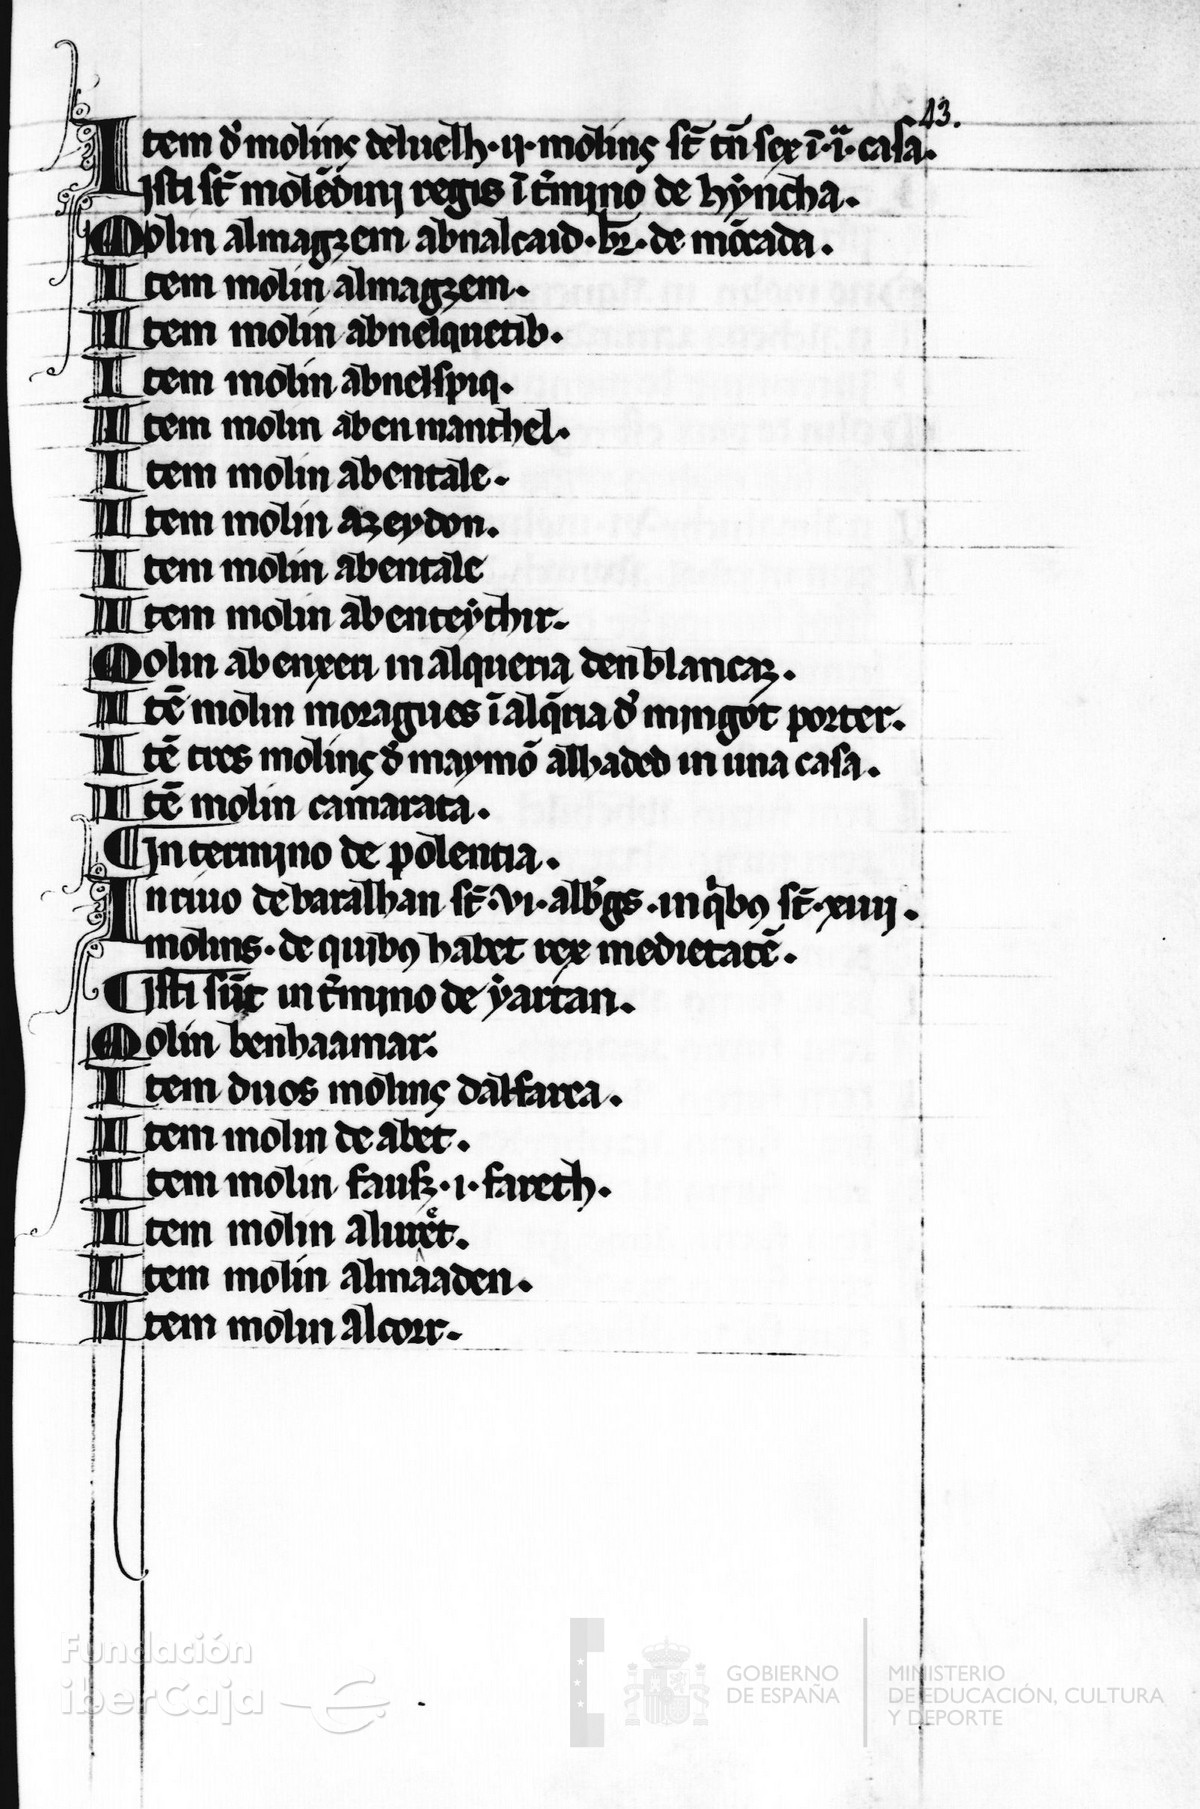 43.
Item đ molinç deluelh · ij · molinç st̄ tn̄ sex ī · ia · casa.
Isti st̄ molēdinj regis ī t̄mino de hẏncha.
Molin almagzem abnalcaid · br̄ · de mōcada.
Item molin almagzem.
Item molin abnelquetib.
Item molin abnelspiq.
Item molin abenmanchel.
Item molin abentale.
Item molin azeydon.
Item molin abentale
Item molin abenteẏthir.
Molin abenxeri in alqueria denblancaz.
Itē molin moragues ī alq̄ria đ mingot porter.
Itē tres molinç đ maymō alhaded in una casa.
Itē molin camarata.
¶ In termino de polentia.
In riuo debaralhan st̄ · vi · alb̄gs · in q̄bꝯ st̄ · xiiij.
molins · de quibꝯ habet rex medietatē.
¶ Isti sūt in t̄mino de ẏartan.
Molin benhaamar.
Item duos molinç dalfarea.
Item molin de abet.
Item molin · i · fareth.
Item molin
Item molin almaaden.
Item molin alcorr.
Fundación
iberCaja
GOBIERNO
DE ESPAÑA
MINISTERIO
DE EDUCACIÓN, CULTURA
Y DEPORTE